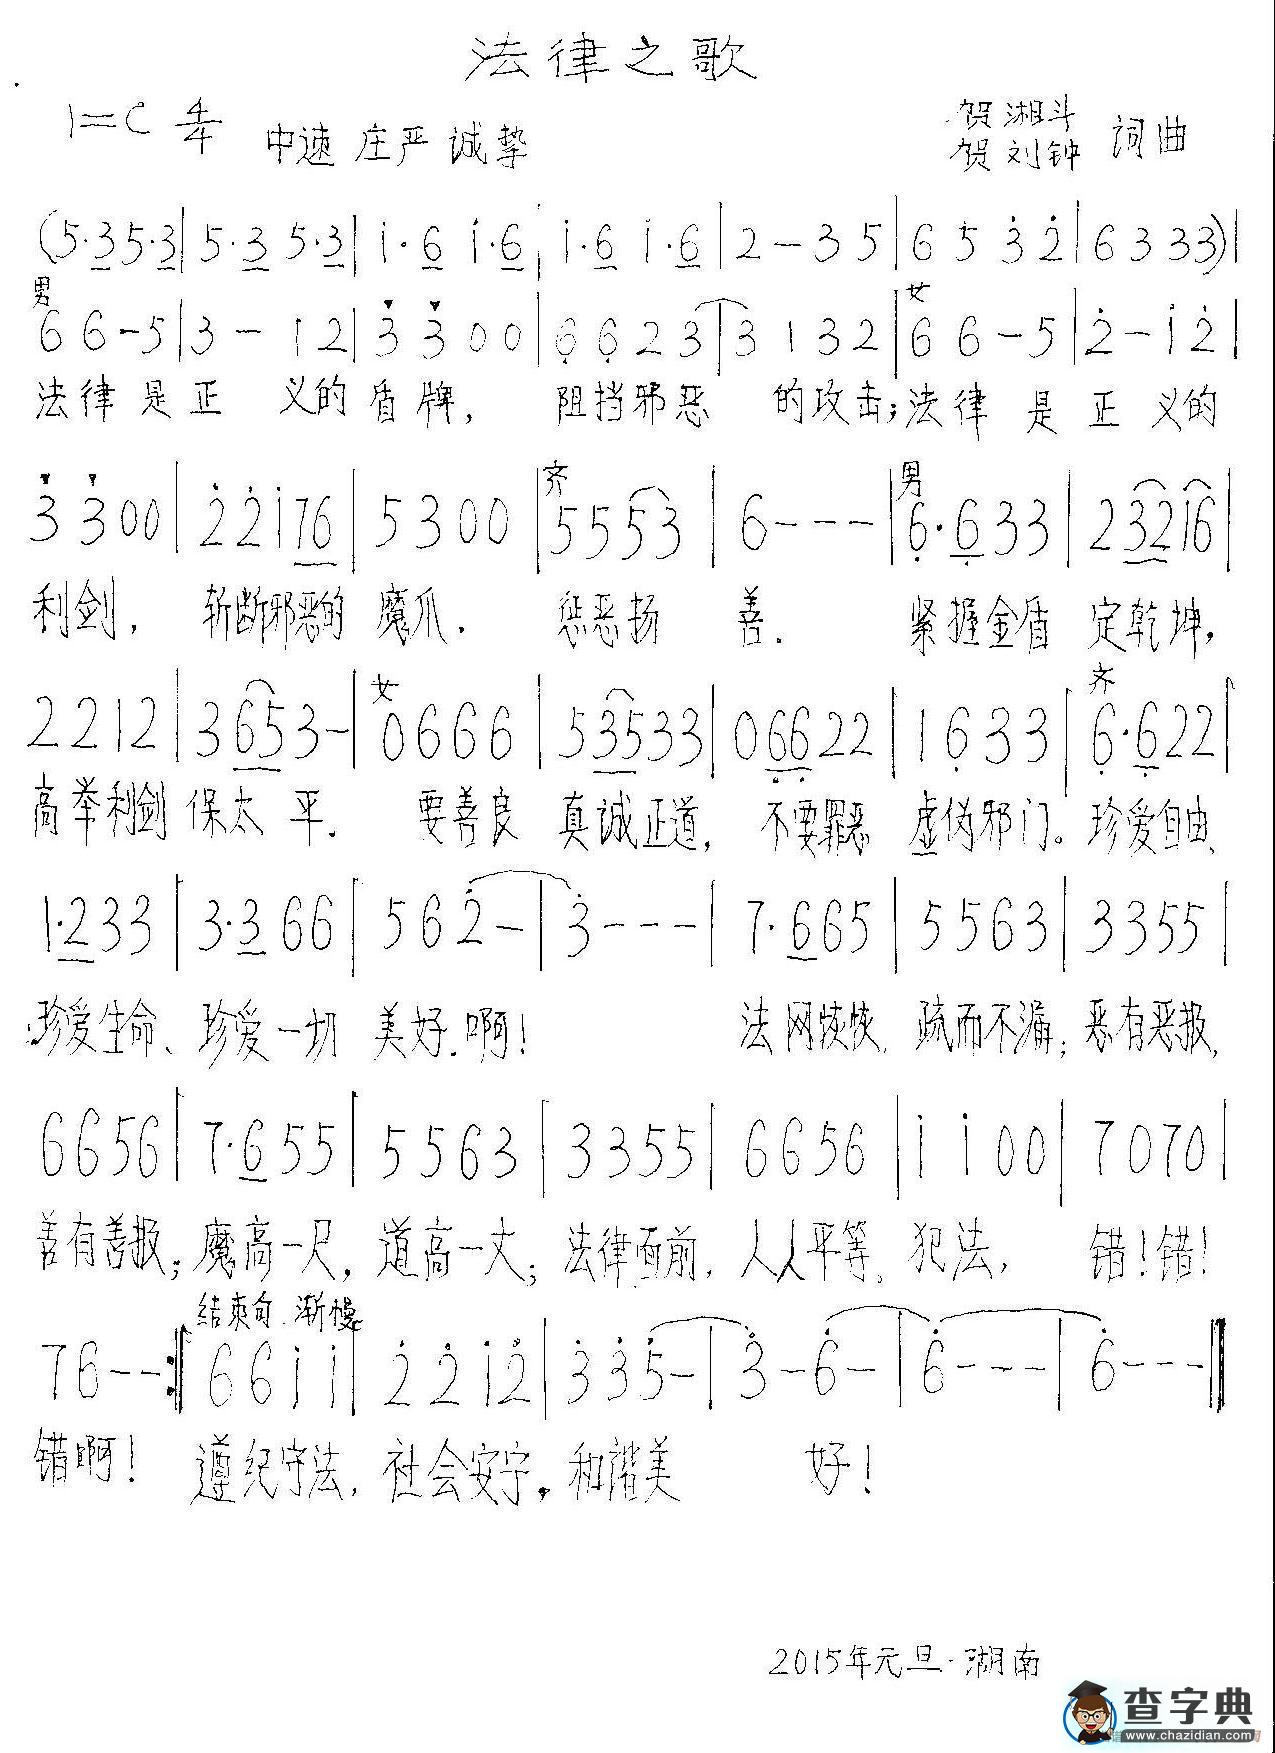 法律之歌
1=C 4/4 中速 庄严 诚挚
贺湘斗
贺刘钟 词曲
(5·35·3|5·3 5·3|i·6 i·6|i·6 i·6|2-35|6 5 3 2|6333)|
男 女
66-5|3-12|3 300|6623|3132|66-5|2-i2|
法律是正 义的盾牌, 阻挡邪恶 的攻击;法律是正义的
齐 男
3 300|22i76|5300|5553|6---|6·633|232i6|
利剑, 斩断邪恶的 魔爪. 惩恶扬 善. 紧握金盾 定乾坤,
女 齐
2212|3653-|0666|53533|06622|1633|6·622|
高举利剑 保太平. 要善良 真诚正道, 不要罪恶 虚伪邪门。珍爱自由、
1·233|3·366|562-|3---|7·665|5563|3355|
珍爱生命、珍爱一切 美好.啊! 法网恢恢, 疏而不漏; 恶有恶报,
6656|7·655|5563|3355|6656|i i00|7070|
善有善报; 魔高一尺, 道高一丈; 法律面前, 人人平等. 犯法, 错!错!
结束句.渐慢
76--:|66ii|22i2|335-|3-6-|6---|6---‖
错啊! 遵纪守法, 社会安宁。和谐美 好!
2015年元旦·湖南
查字典
www.chazidian.com